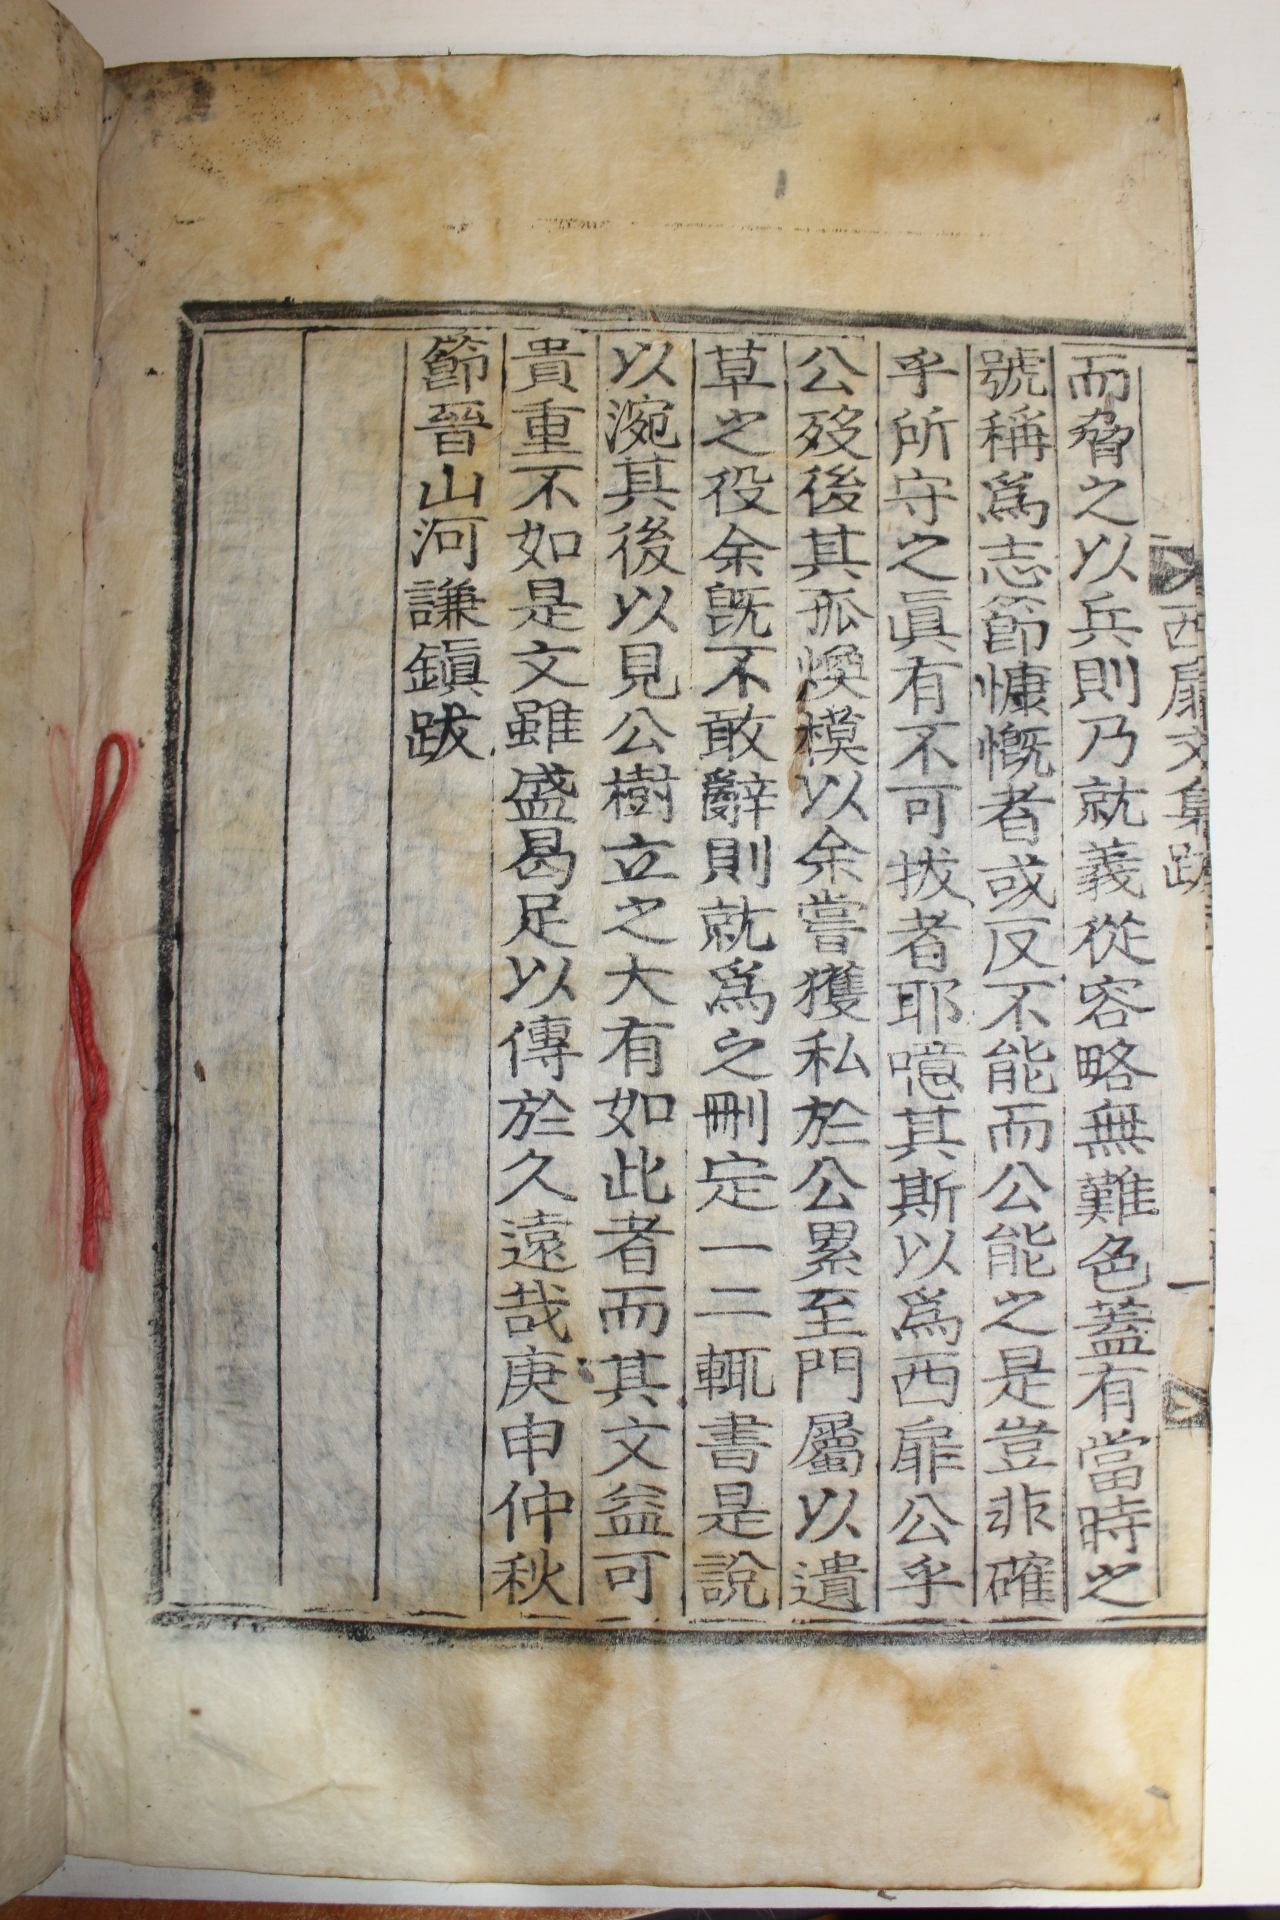 西扉文集跋 一
而脅之以兵則乃就義從容略無難色蓋有當時之
號稱爲志節慷慨者或反不能而公能之是豈非確
乎所守之眞有不可拔者耶噫其斯以爲西扉公乎
公歿後其孤煥模以余嘗獲私於公累至門屬以遺
草之役余旣不敢辭則就爲之刪定一二輒書是說
以涴其後以見公樹立之大有如此者而其文益可
貴重不如是文雖盛曷足以傳於久遠哉庚申仲秋
節晉山河謙鎭跋